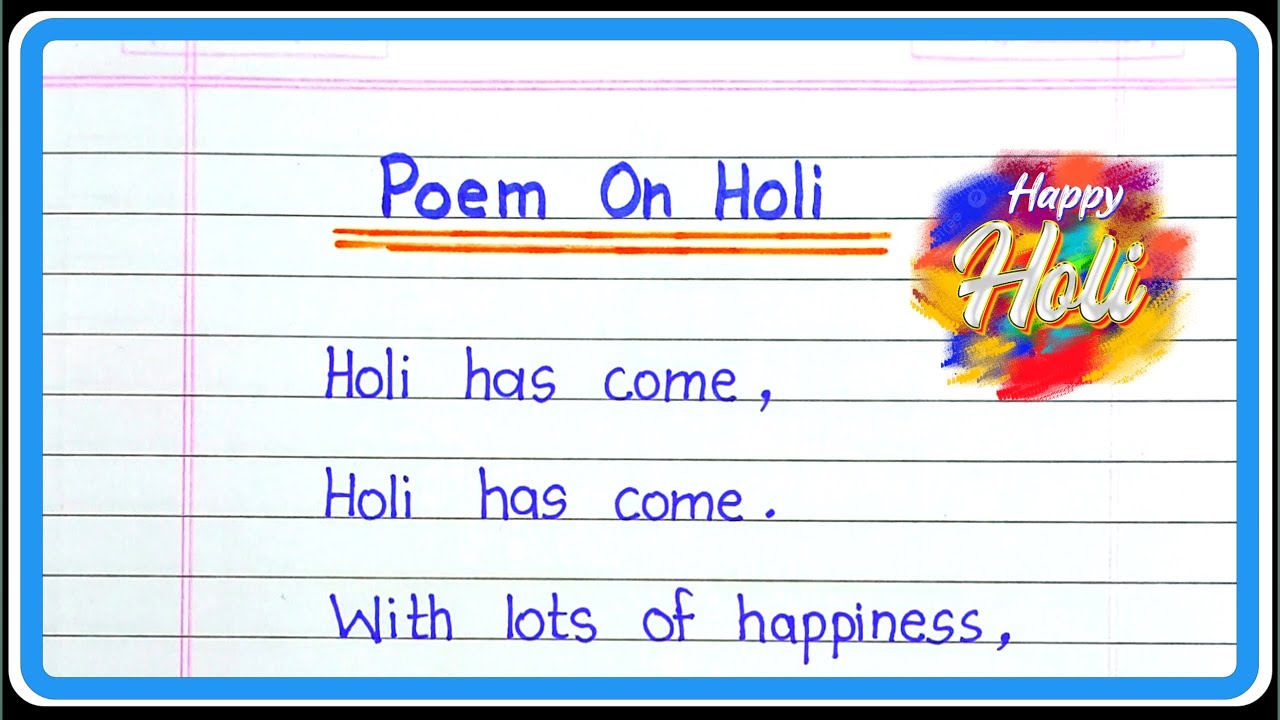 Poem On Holi
Happy
Holi
Holi has come,
Holi has come.
With lots of happiness,